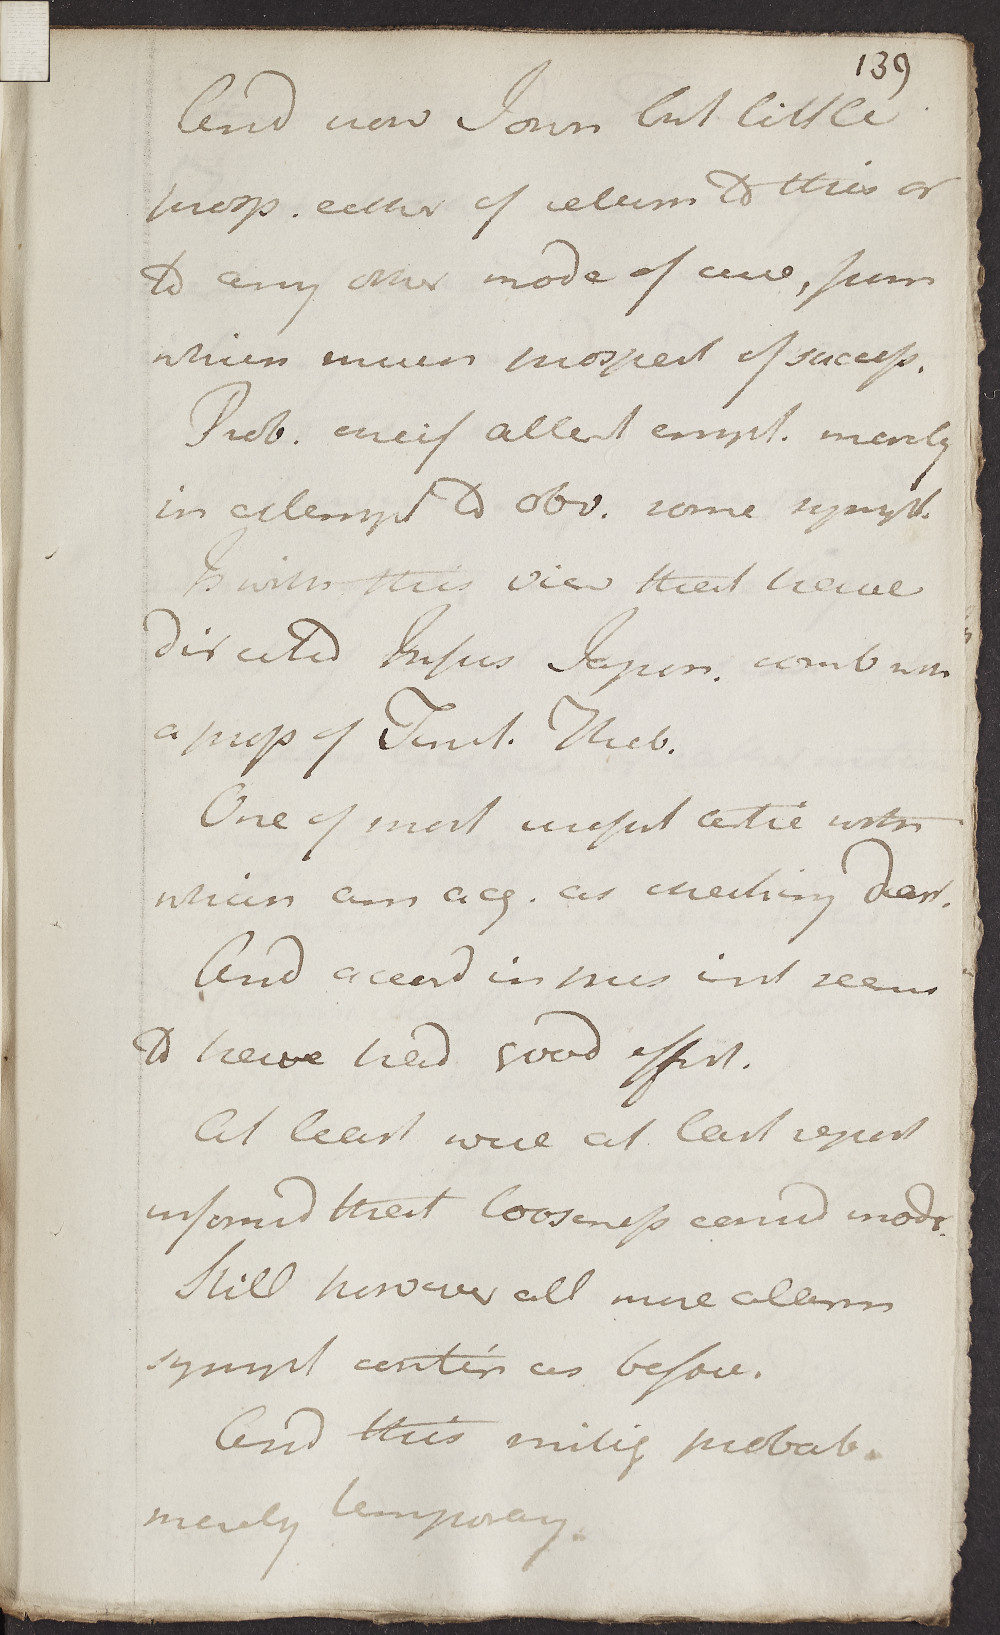 139
And now I own but little
prosp. either of return to this or
to any other mode of cure, from
which much prospect of success.
Prob. only attent empt. merely
in attempt to obv. some sympt.
Is with this view that have
directed Infus Japon. comb with
a prop of Tinct. Theb.
One of most useful artic with
which am acq. as checking diar.
And accord in pres inst seems
to have had good effect.
At least were at last report
informd that looseness consid modr.
Still however all more alarm
sympt contin as before.
And this mitig probab.
merely temporary.